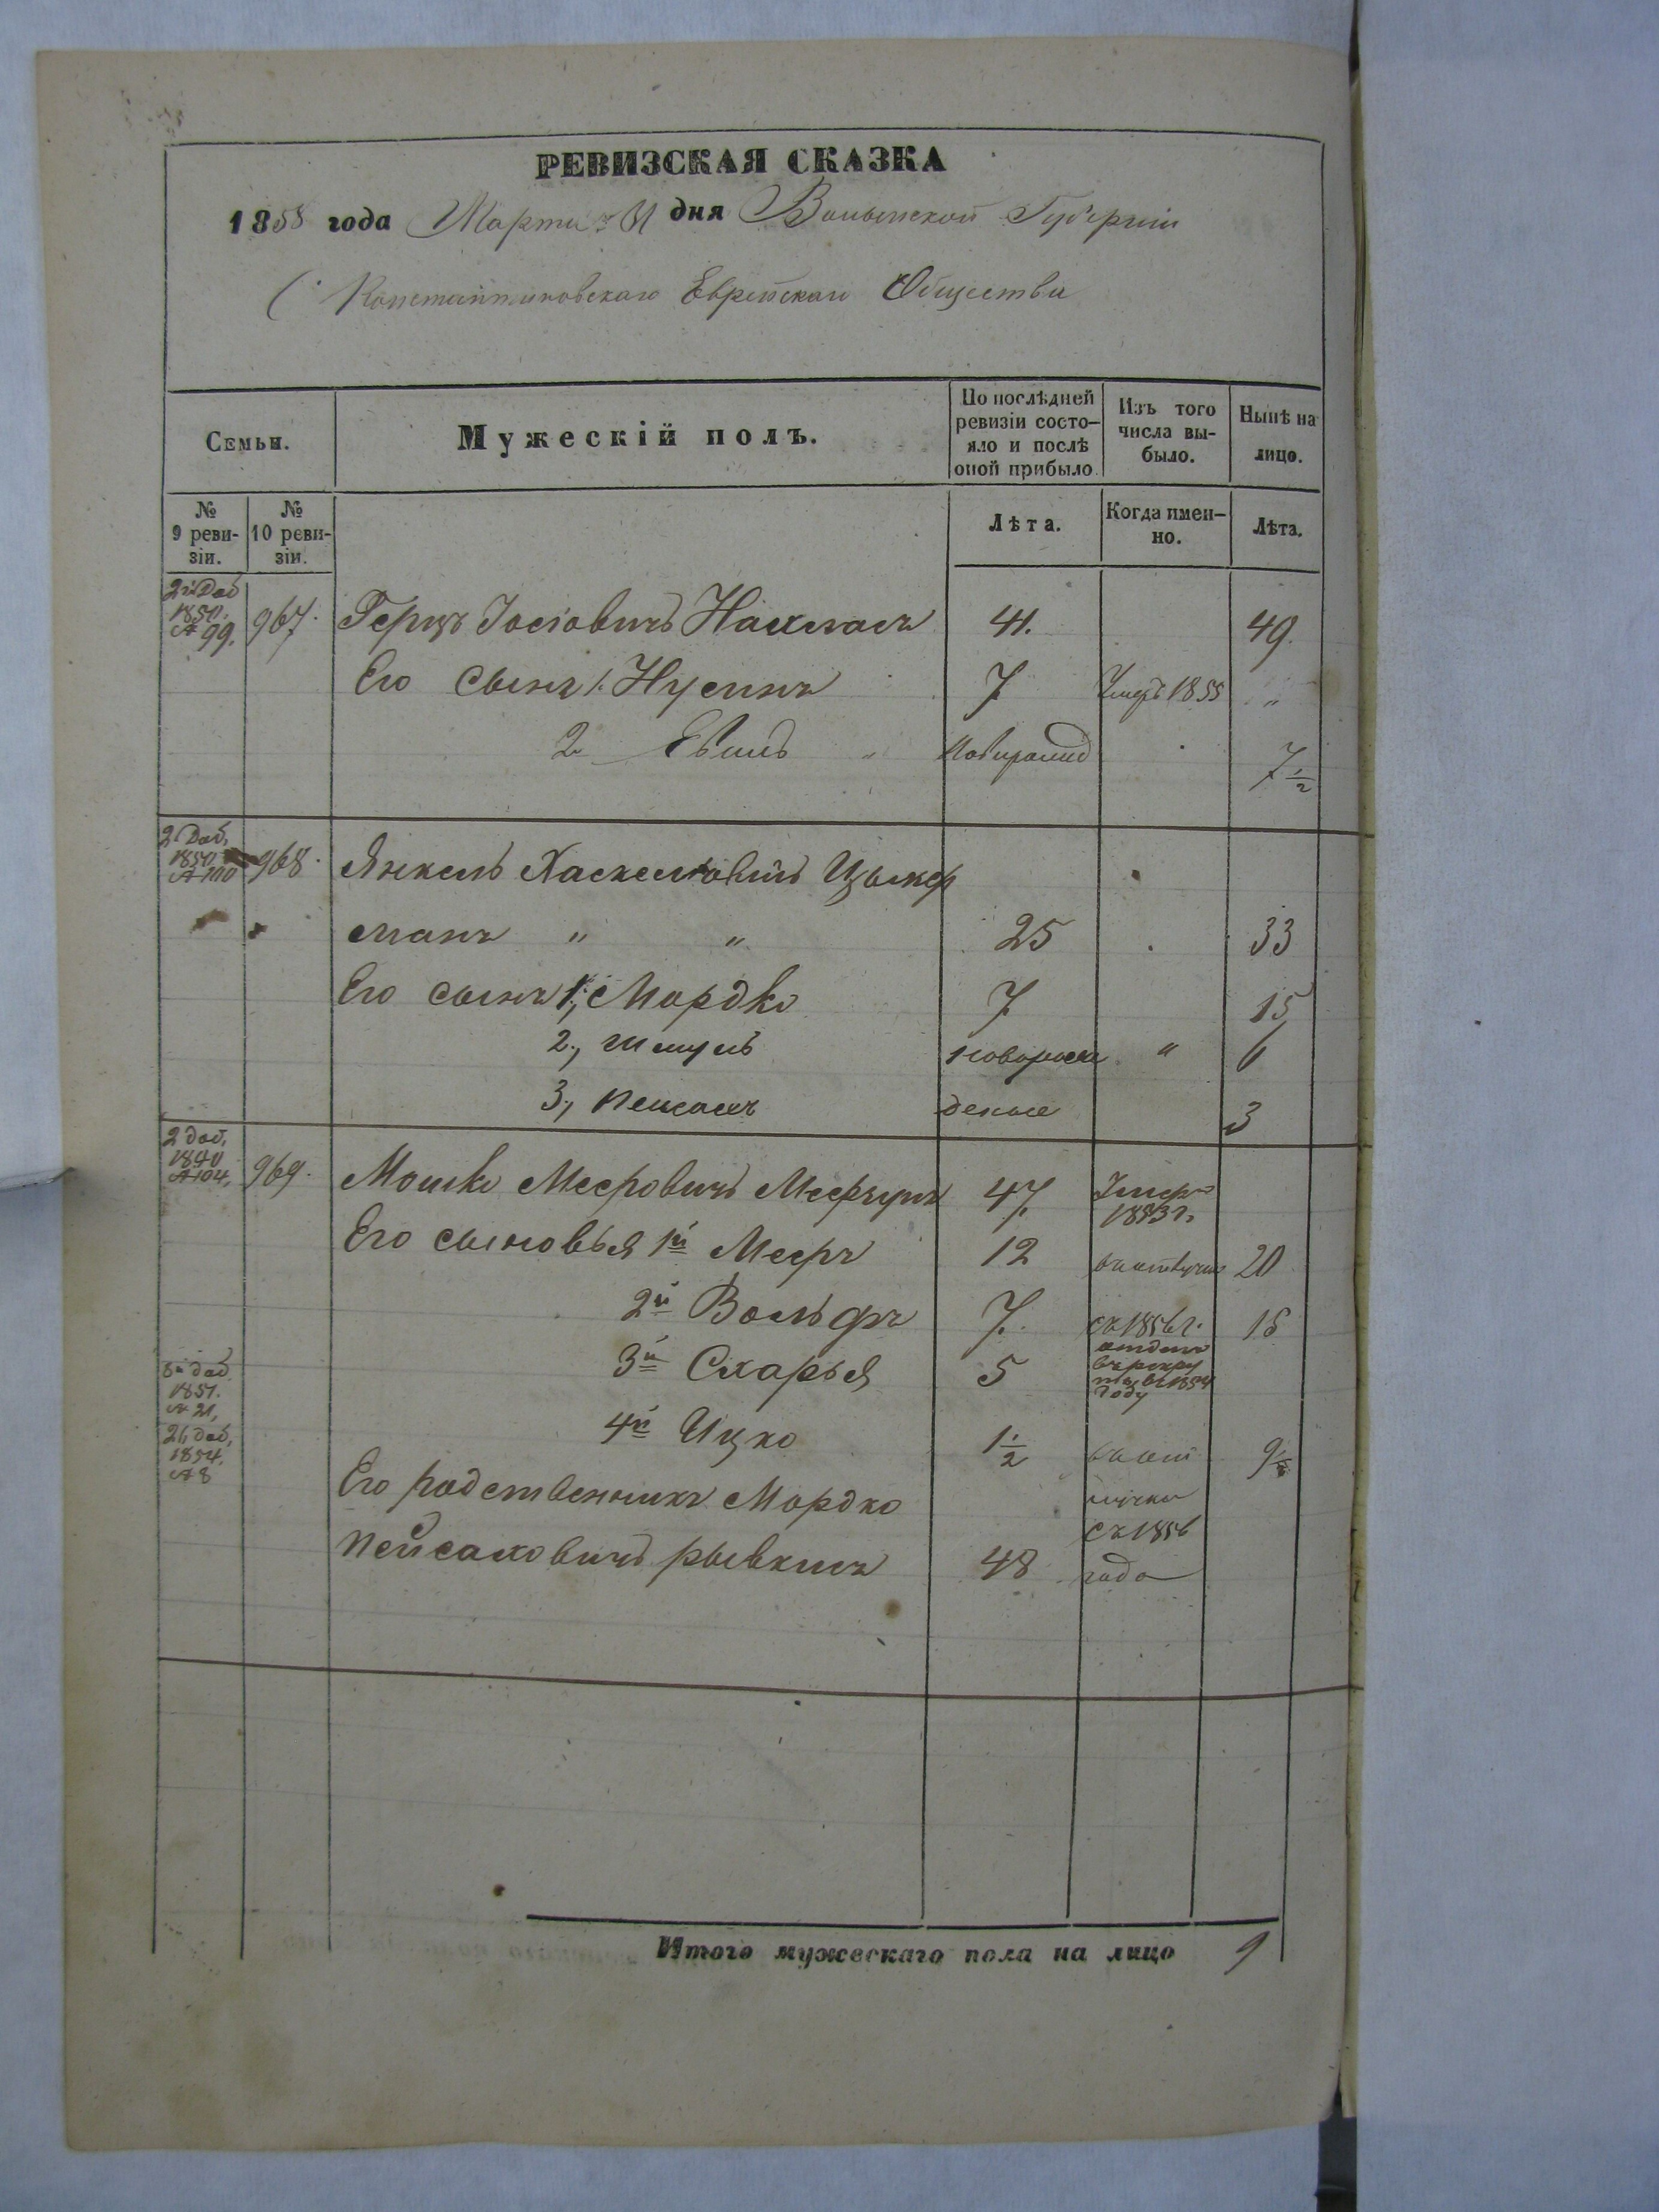 РЕВИЗСКАЯ СКАЗКА
1858 года Марта дня Волынской Губерніи
Константиновскаго Еврейскаго Общества
Семьи.
Мужескій полъ.
По послѣдней ревизіи состо-
яло и послѣ
оной прибыло.
Изъ того
числа вы-
было.
Нынѣ на
лицо.
№
9 реви-
зіи.
№
10 реви-
зіи.
Лѣта.
Когда имен-
но.
Лѣта.
2й Доб
1850.
№ 99. 967. Герцъ Іосіовичъ 41. 49.
Его сынъ 1. Нусинъ 7 Умеръ 1855 "
2 " 7 1/2
2 Доб,
1850
№ 100 968. Янкель Хаскелювичъ Цыкер
манъ " " 25 33
Его сынъ 1., Мордко 7 15
2., Шмуль новорож " 6
3., Пейсахъ деные 3
2 доб,
1850
№ 104, 969. Мошко Мееровичъ 47. Умеръ
1853 г.
Его сыновья 1й Мееръ 12 20
2й Вольфъ 7. съ 1856 г. 15
3й Схарья 5 отданъ
въ рекру
ты въ 1854
году
8й доб
1851.
№ 21,
4й Ицко 1 1/2 9 1/2
21, доб,
1854.
№ 8
Его родственникъ Мордко
Пейсаховичъ Рывкинъ 48 съ 1856
года
Итого мужескаго пола на лицо 9